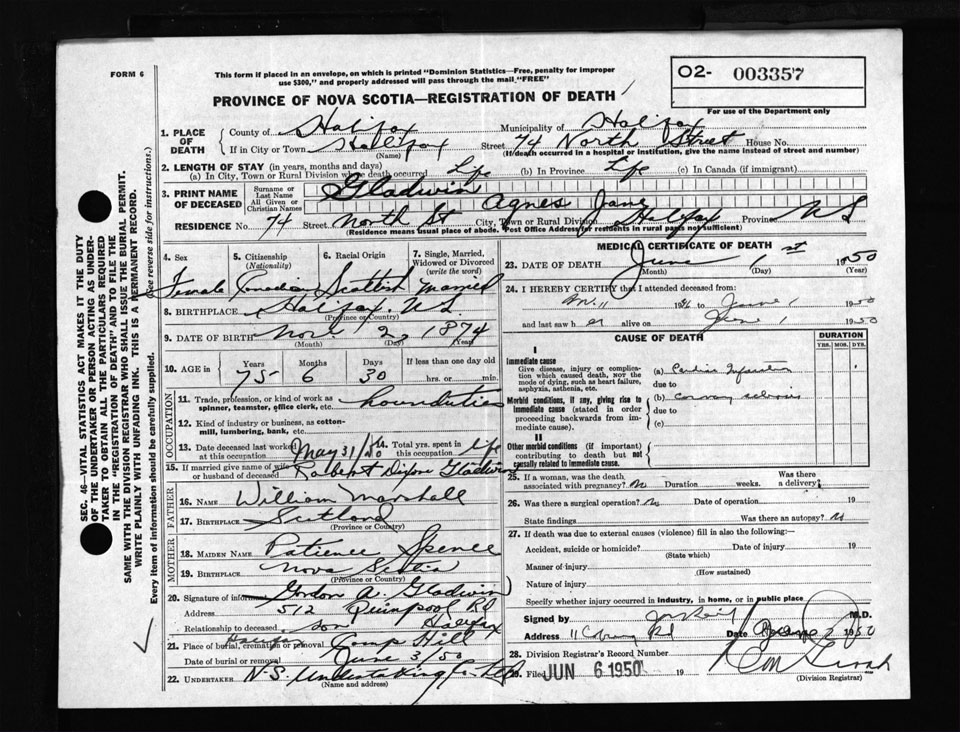 FORM 6
This form if placed in an envelope, on which is printed "Dominion Statistics—Free, penalty for improper
use $300," and properly addressed will pass through the mail "FREE"
O2- 003357
For use of the Department only
PROVINCE OF NOVA SCOTIA—REGISTRATION OF DEATH
1. PLACE OF DEATH
County of Halifax Municipality of Halifax
If in City or Town Halifax (Name) Street 74 North Street House No.
(If death occurred in a hospital or institution, give the name instead of street and number)
2. LENGTH OF STAY (in years, months and days)
(a) In City, Town or Rural Division where death occurred Life (b) In Province Life (c) In Canada (if immigrant)
3. PRINT NAME OF DECEASED
Surname or Last Name Gladwin
All Given or Christian Names Agnes Jane
RESIDENCE No. 74 Street North St City, Town or Rural Division Halifax Province N S
(Residence means usual place of abode. Post Office Address for residents in rural parts not sufficient)
4. Sex Female
5. Citizenship (Nationality) Canadian
6. Racial Origin Scottish
7. Single, Married, Widowed or Divorced (write the word) Married
8. BIRTHPLACE Halifax. N.S.
(Province or Country)
9. DATE OF BIRTH Nov. 2 1874
(Month) (Day) (Year)
10. AGE in Years 75 Months 6 Days 30 If less than one day old
hrs. or min.
OCCUPATION
11. Trade, profession, or kind of work as
spinner, teamster, office clerk, etc.
12. Kind of industry or business, as cotton-
mill, lumbering, bank, etc.
13. Date deceased last worked at this occupation May 31/50
14. Total yrs. spent in this occupation life
15. If married give name of wife or husband of deceased Robert Dixon Gladwin
FATHER
16. NAME William Marshall
17. BIRTHPLACE Scotland
(Province or Country)
MOTHER
18. MAIDEN NAME Patience Spence
19. BIRTHPLACE Nova Scotia
(Province or Country)
20. Signature of informant Gordon A. Gladwin
Address 512 Quinpool Rd
Relationship to deceased son Halifax
21. Place of burial, cremation or removal Halifax Camp Hill
Date of burial or removal June 3/50
22. UNDERTAKER N.S. Undertaking Co. Ltd
(Name and address)
MEDICAL CERTIFICATE OF DEATH
23. DATE OF DEATH June 1st 1950
(Month) (Day) (Year)
24. I HEREBY CERTIFY that I attended deceased from
to June 1 1950
and last saw her alive on June 1 1950
CAUSE OF DEATH
DURATION
YRS. MOS. DYS.
I
Immediate cause
Give disease, injury or complica-
tion which caused death, not the
mode of dying, such as heart failure,
asphyxia, asthenia, etc.
(a) Cardiac Infarction
due to
Morbid conditions, if any, giving rise to
immediate cause (stated in order
proceeding backwards from im-
mediate cause).
(b) Coronary sclerosis
due to
(c)
II
Other morbid conditions (if important)
contributing to death but not
causally related to immediate cause.
25. If a woman, was the death
associated with pregnancy? No Duration weeks. Was there a delivery?
26. Was there a surgical operation? No Date of operation 19
State findings Was there an autopsy? No
27. If death was due to external causes (violence) fill in also the following:—
Accident, suicide or homicide? Date of injury 19
(State which)
Manner of injury
(How sustained)
Nature of injury
Specify whether injury occurred in industry, in home, or in public place
Signed by M.D.
Address Date June 2 1950
28. Division Registrar's Record Number
29. Filed JUN 6 1950 19
(Division Registrar)
SEC. 46—VITAL STATISTICS ACT MAKES IT THE DUTY
OF THE UNDERTAKER OR PERSON ACTING AS UNDER-
TAKER TO OBTAIN ALL THE PARTICULARS REQUIRED
IN THE "REGISTRATION OF DEATH" AND TO FILE THE
SAME WITH THE DIVISION REGISTRAR WHO SHALL ISSUE THE BURIAL PERMIT.
WRITE PLAINLY WITH UNFADING INK. THIS IS A PERMANENT RECORD.
Every item of information should be carefully supplied. (See reverse side for instructions.)